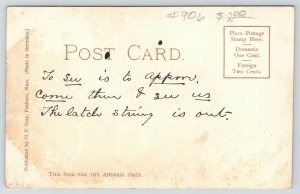 #906 $2.00
POST CARD.
Place Postage
Stamp Here.
Domestic
One Cent.
Foreign
Two Cents.
To see is to appre,
Come then & see us
The latch string is out.
Published by H. P. Gray, Mass. (Made in Germany)
THIS SIDE FOR THE ADDRESS ONLY.